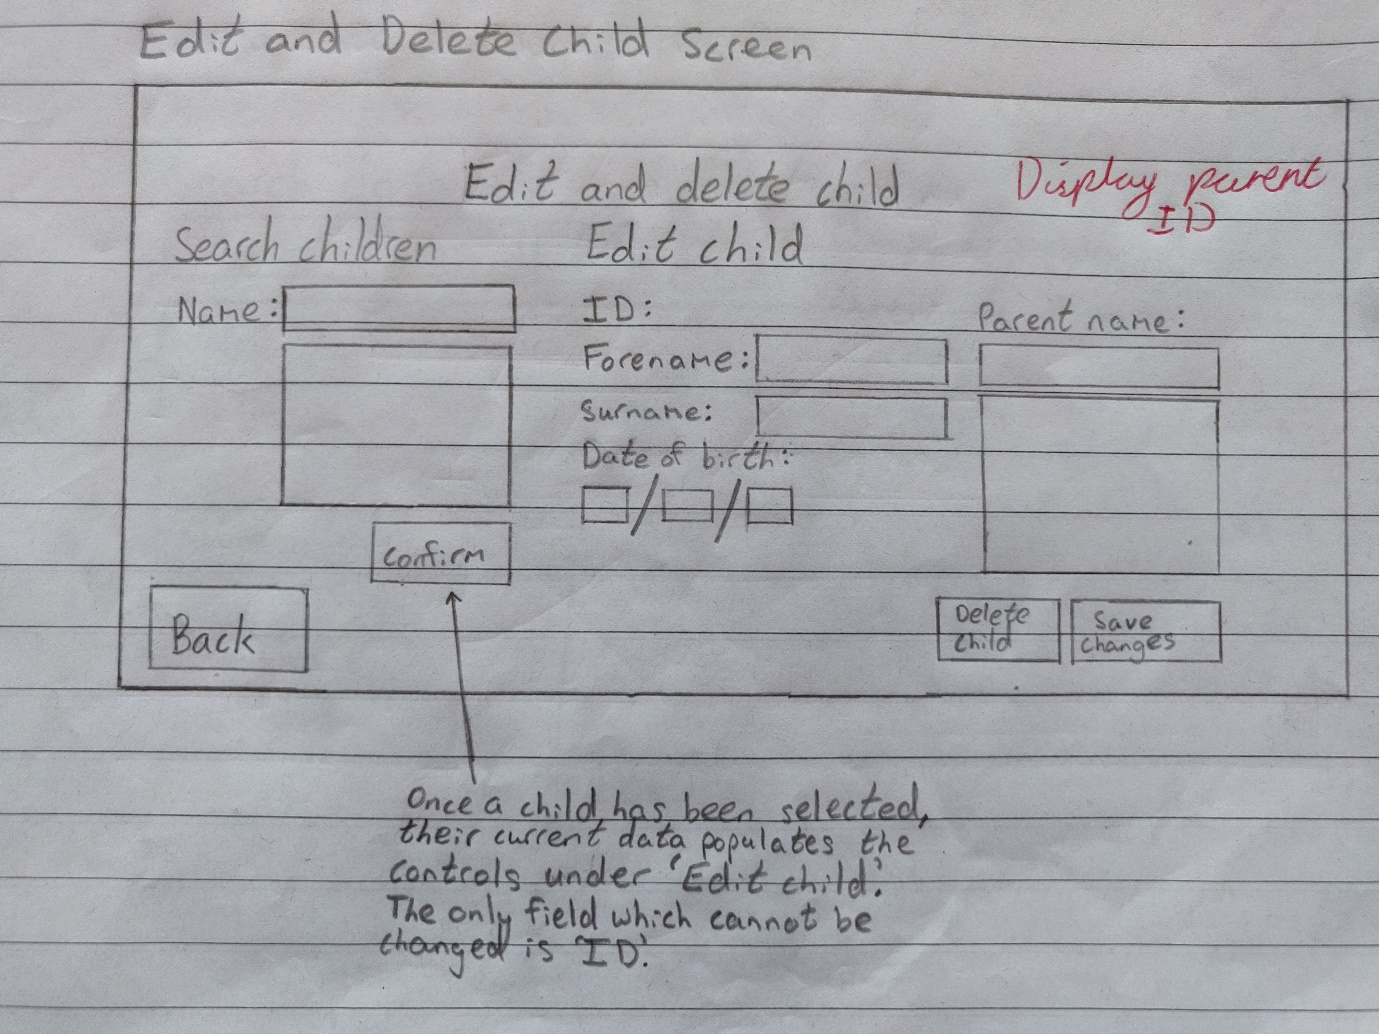 Edit and Delete Child Screen
Edit and delete child
Display parent
ID
Search children
Edit child
Name:
ID:
Parent name:
Forename:
Surname:
Date of birth:
/ /
Confirm
Back
Delete
Child
Save
changes
Once a child has been selected,
their current data populates the
controls under 'Edit child'.
The only field which cannot be
changed is 'ID'.